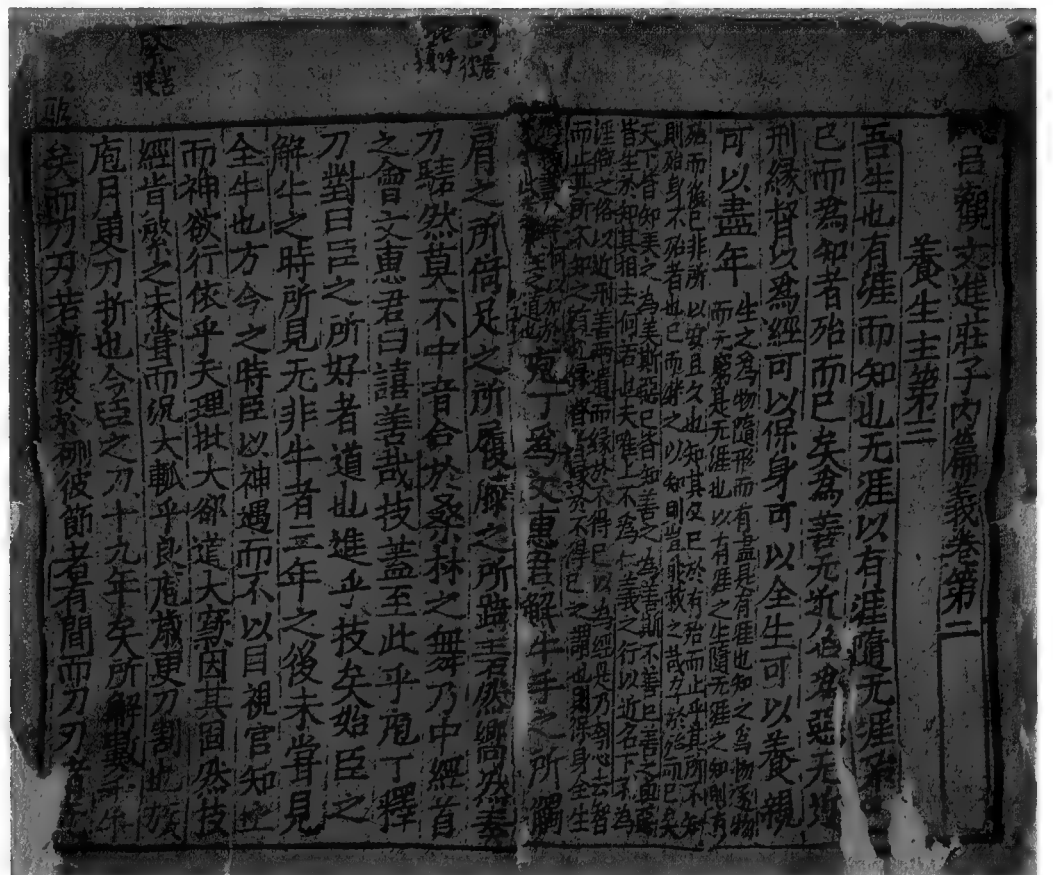 呂觀文進莊子內篇義卷第二
養生主第三
吾生也有涯而知也无涯以有涯隨无涯殆
已而為知者殆而已矣為善无近名為惡无近
刑緣督以為經可以保身可以全生可以養親
可以盡年
生之為物隨形而有盡是有涯也知之為物逐物
而无窮是无涯也以有涯之生隨无涯之知則有
殆而後已非所以安且久也知其及已於有殆而止乎其所不知
則殆身不殆者也已而之以知則豈非救之哉於殆而已矣
天下皆知美之為美斯惡已皆知善之為善斯不善已善之與惡
皆生於知其相去何若也夫唯上不為仁義之行以近名下不為
淫僻之俗以近刑善惡兩遺而緣於不得已以為經是乃刳心去智
而止其所不知之緣督者緣於不得已之謂也則保身全生
之道也
庖丁為文惠君解牛手之所觸
肩之所倚足之所履膝之所踦砉然嚮然奏
刀騞然莫不中音合於桑林之舞乃中經首
之會文惠君曰譆善哉技蓋至此乎庖丁釋
刀對曰臣之所好者道也進乎技矣始臣之
解牛之時所見无非牛者三年之後未嘗見
全牛也方今之時臣以神遇而不以目視官知止
而神欲行依乎天理批大郤道大窾因其固然技
經肯綮之未嘗而況大軱乎良庖歲更刀割也族
庖月更刀折也今臣之刀十九年矣所解數千牛
矣而刀刃若新發於硎彼節者有間而刀刃者